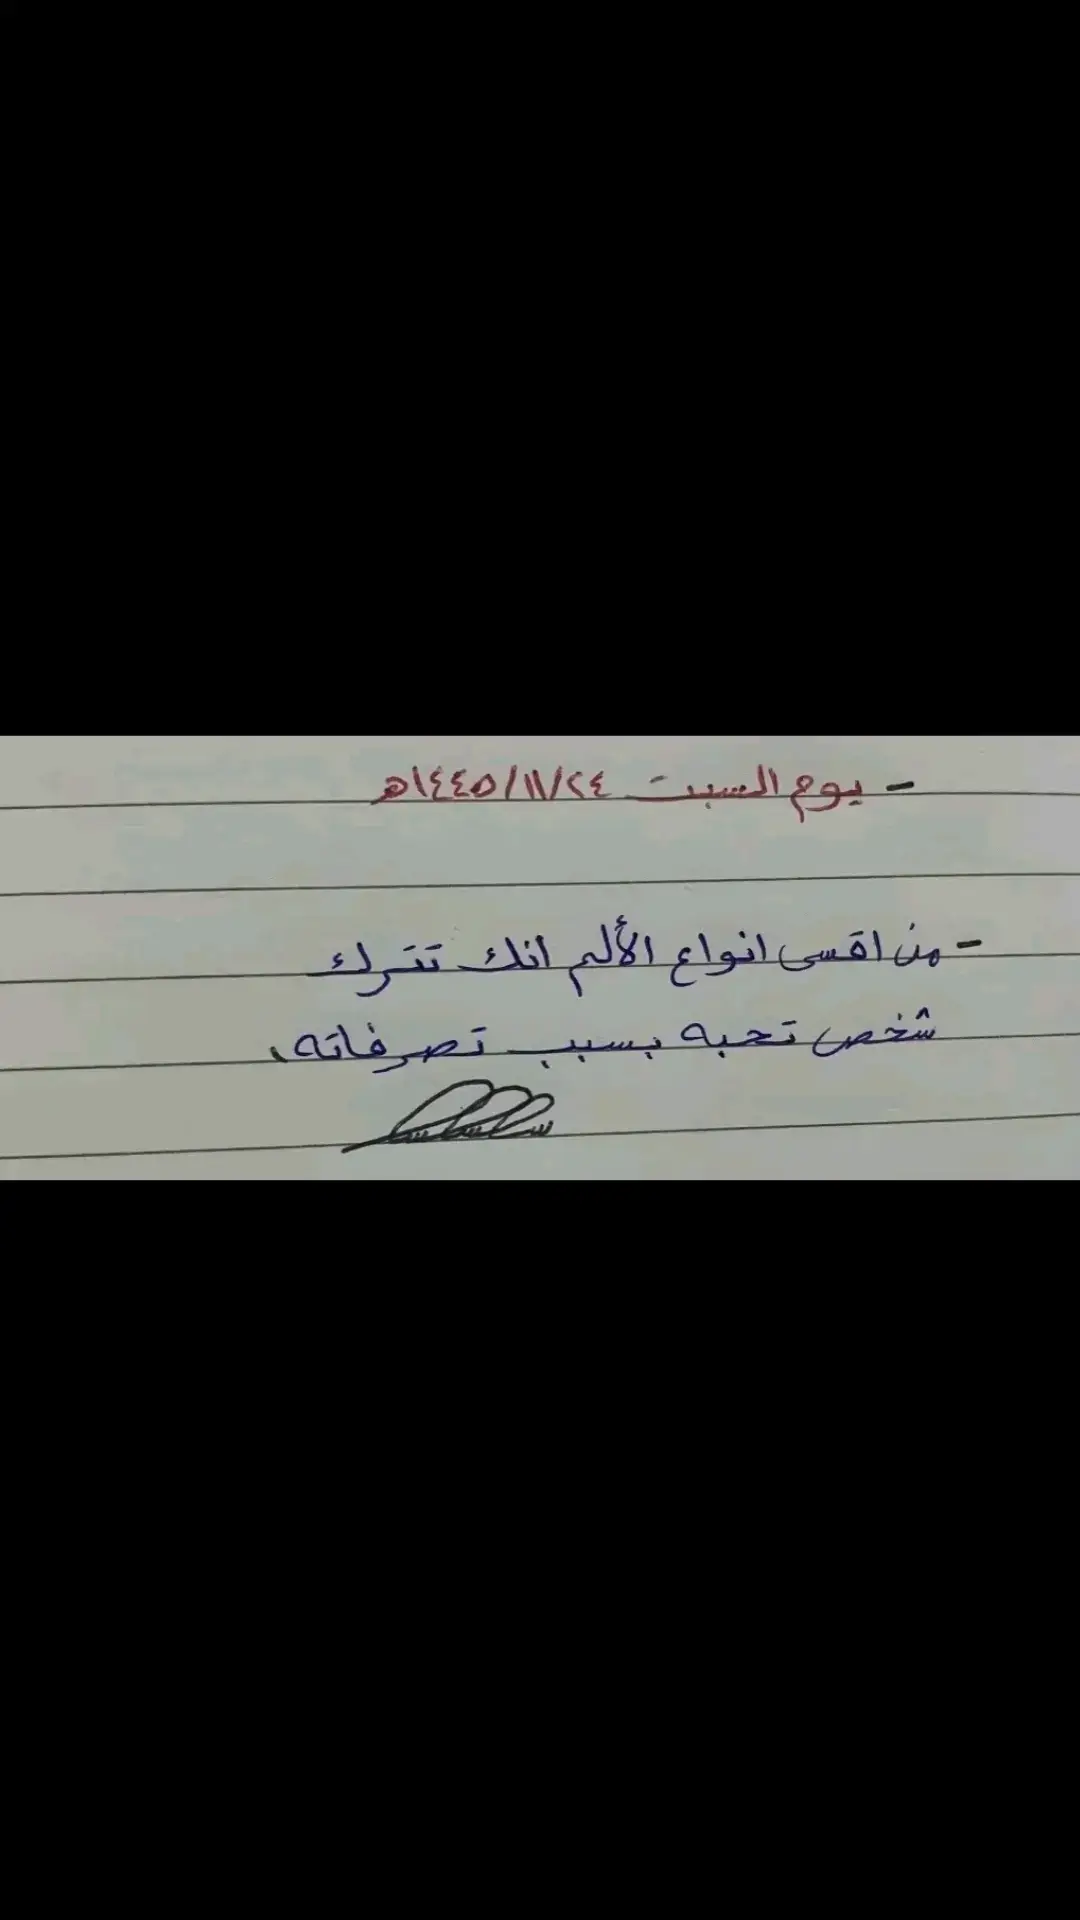 - يوم السبت ٢٤/١١/١٤٤٥هـ
- من اقسى انواع الألم انك تترك
شخص تحبه بسبب تصرفاته،